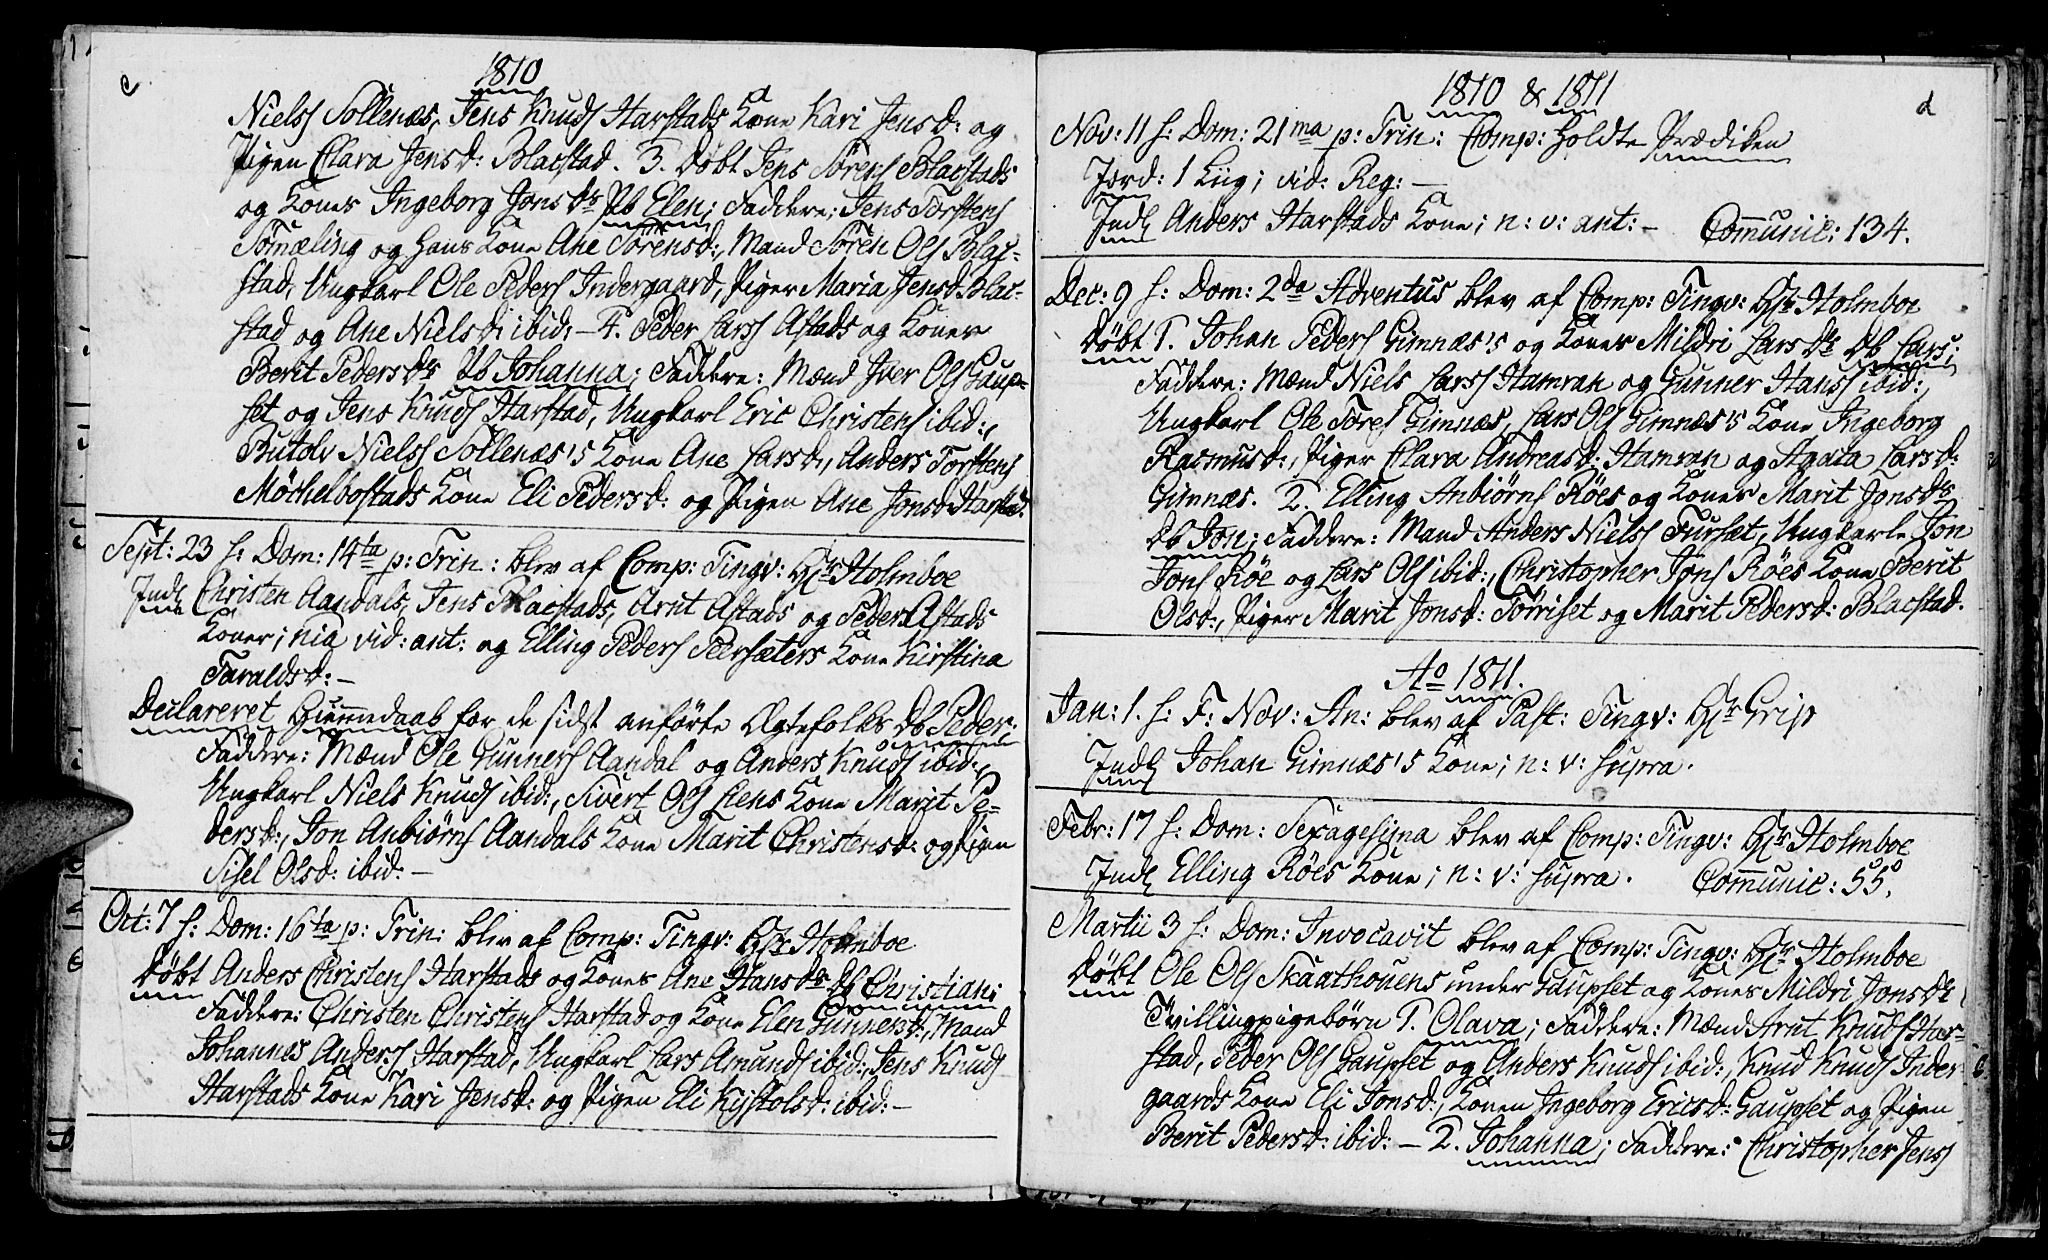 c
1810
Nielss Sollenæs, Jens Knuds Harstads Kone Kari Jensd: og
Pigen Clara Jensd: Blacstad. 3. Døbt Jens Sørens Blacstads
og Kones Ingeborg Jons Dr Pb Elen; Faddere: Jens Torstens
Tømæling og hans Kone Ane Sørensd:, Mand Søren Ols Blac-
stad, Ungkarl Ole Peders Indergaard, Piger Maria Jensd: Blac-
stad og Ane Nielsd: ibid: – 4. Peder Larss Astads og Kones
Berit Peders Dr Pb Johanna; Faddere: Mænd Iver Ols Gaup-
set og Jens Knuds Harstad, Ungkarl Eric Christens ibid:,
Butolv Nielss Sollenæs's Kone Ane Larsd:, Anders Torstens
Møchelbostads Kone Eli Pedersd: og Pigen Ane Jonsd: Harstad.
Sept: 23 s: Dom: 14ta p: Trin: blev af Comp: Tingv: Hr Holmboe
Indl Christen Aandals, Jens Blacstads, Arnt Astads og Peder Astads
Koner; nia vid: ant: og Elling Peders Peersæters Kone Kirstina
Taraldsd: –
Declareret Hiemmedaab for de sidst anførte Ægtefolks Db Peder;
Faddere: Mænd Ole Gunners Aandal og Anders Knuds ibid:,
Ungkarl Niels Knuds ibid:, Sivert Ols Liens Kone Marit Pe-
dersd:, Jon Anbiørns Aandals Kone Marit Christensd: og Pigen
Sisel Olsd: ibid: –
Oct: 7 s: Dom: 16ta p: Trin: blev af Comp: Tingv: Hr Holmboe
Døbt Anders Christens Harstads og Kones Ane Hans Dr Db Christian;
Faddere: Christen Christens Harstad og Kone Elen Gunnersd:, Mand
Johannes Anderss Harstad, Ungkarl Lars Amunds ibid:, Jens Knuds
Harstads Kone Kari Jensd: og Pigen Eli Kystolsd: ibid: –
1810 & 1811
d
Nov: 11 s: Dom: 21ma p: Trin: Comp: holdte Prædiken
Jord: 1 Liig; vid: Reg: –
Indl Anders Harstads Kone; n: v: ant: – Communic: 134.
Dec: 9 s: Dom: 2da Adventus blev af Comp: Tingv: Hr Holmboe
Døbt 1. Johan Peders Gimnæs's og Kones Mildri Lars Dr Db Lars;
Faddere: Mænd Niels Larss Hamran og Gunner Hanss ibid:,
Ungkarl Ole Tores Gimnæs, Lars Ols Gimnæs's Kone Ingeborg
Rasmusd:, Piger Clara Andreasd: Hamran og Agata Larsd:
Gimnæs. 2. Elling Anbiørns Röes og Kones Marit Jons Dr
Db Jon; Faddere: Mand Anders Nielss Fursæt, Ungkarle Jon
Jons Röe og Lars Ols ibid:, Christopher Jons Röes Kone Berit
Olsd:, Piger Marit Jonsd: Tørriset og Marit Pedersd: Blacstad.
Ao 1811.
Jan: 1. s: F: Nov: An: blev af Past: Tingv: Hr Grip
Indl Johan Gimnæs's Kone; n: v: supra.
Febr: 17 s: Dom: Sexagesima blev af Comp: Tingv: Hr Holmboe
Indl Elling Röes Kone; n: v: supra. Communic: 55.
Martii 3 s: Dom: Invocavit blev af Comp: Tingv: Hr Holmboe
Døbt Ole Ols Skaathouens under Gaupset og Kones Mildri Jons Dr
Tvillingpigebørn 1. Olava; Faddere: Mænd Arnt Knuds Har-
stad, Peder Ols Gaupset og Anders Knuds ibid:, Knud Knuds Inder-
gaards Kone Eli Jonsd:, Konen Ingeborg Ericsd: Gaupset og Pigen
Berit Pedersd: ibid: – 2. Johanna; Faddere: Christopher Jenss